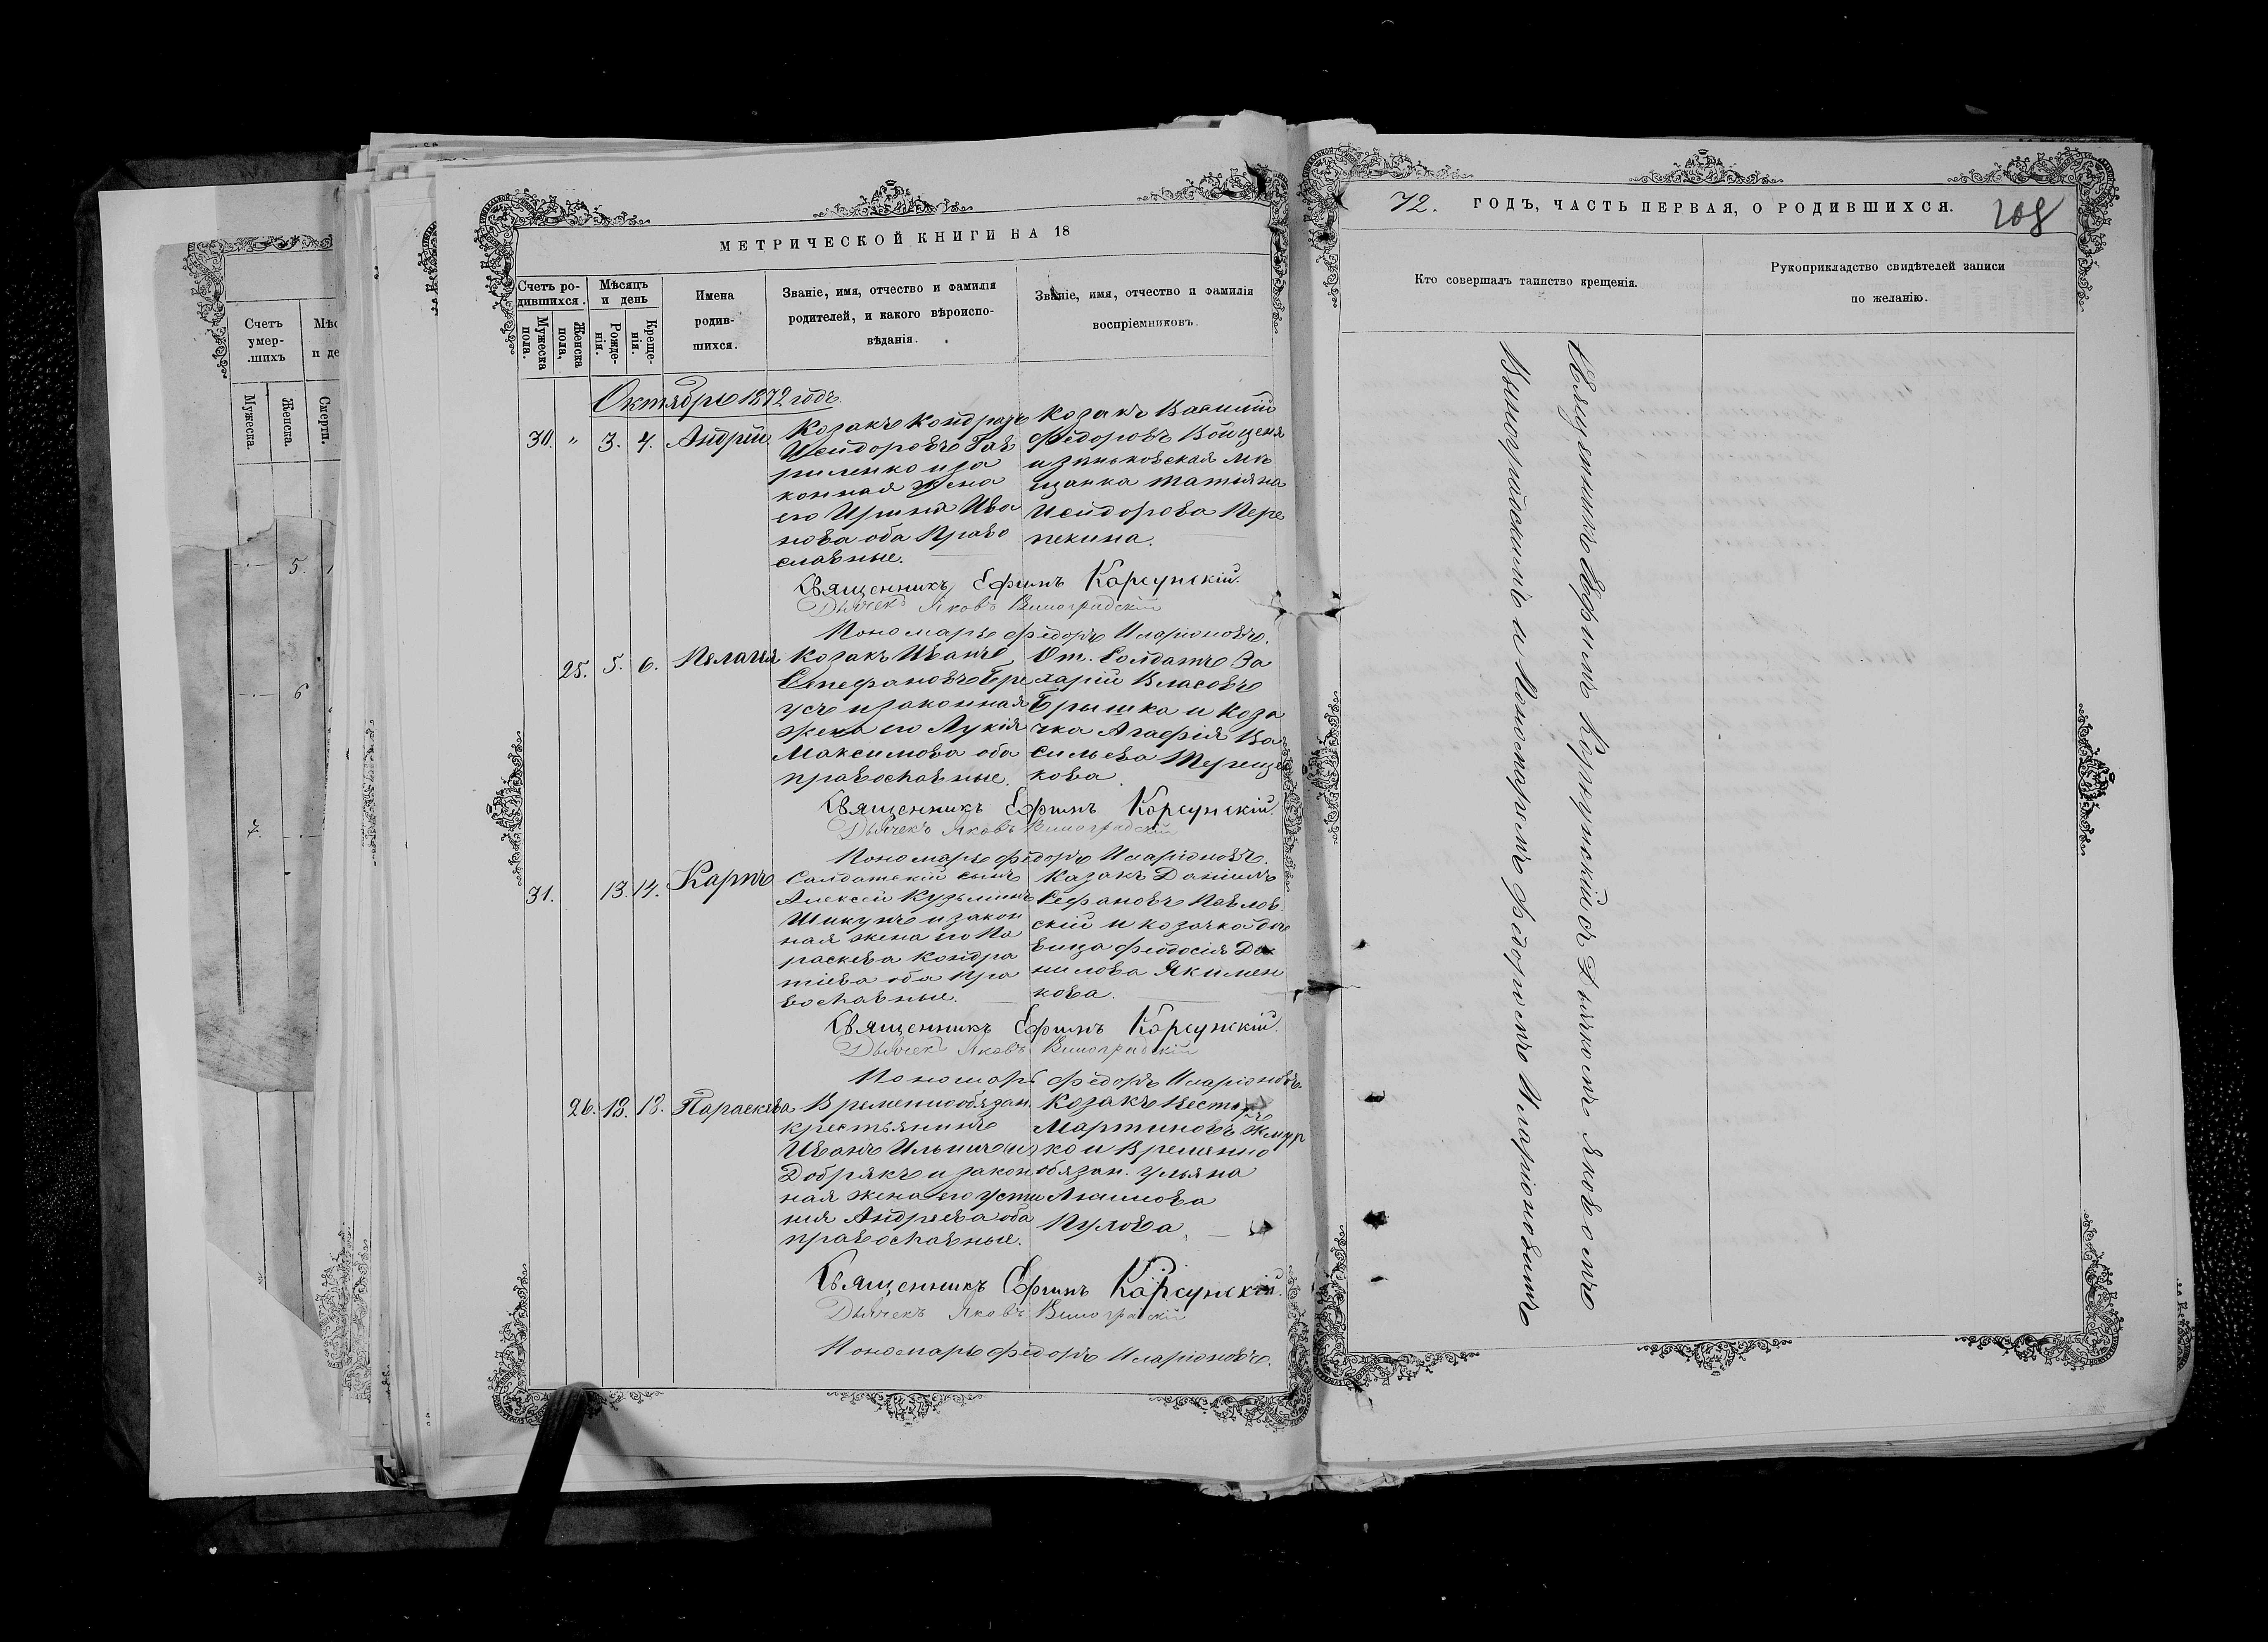 МЕТРИЧЕСКОЙ КНИГИ НА 18
Счетъ ро-
дившихся.
Мужеска пола.
Женска пола,
Мѣсяцъ
и день
Рожде-
нія.
Креще-
нія.
Имена
родив-
шихся.
Званіе, имя, отчество и фамилія
родителей, и какого вѣроиспо-
вѣданія.
Званіе, имя, отчество и фамилія
воспріемниковъ.
Октябрь 1872 годъ.
30. " 3. 4. Андрій
Козакъ Кондратъ
Исидоровъ Гав
риленко и за
конная жена
его Ирина Ива
нова оба Право
славные.
Козакъ Василій
Федоровъ Войценя
и зѣньковская мѣ
щанка Татіяна
Исидорова Пере
пекина.
Священникъ Ефимъ Корсунскій.
Дьячекъ Яковъ Виноградскій
Пономарь Федоръ Иларіоновъ.
25. 5. 6. Пелагія
Козакъ Иванъ
Стефановъ Бре
усъ и законная
жена его Лукія
Максимова оба
православные.
От. Солдатъ За
харій Власовъ
Бришка и Коза
чка Агафія Ва
сильева Тереще
кова
Священникъ Ефимъ Корсунскій.
Дьячекъ Яковъ Виноградскій
Пономарь Федоръ Иларіоновъ.
31. 13. 14. Карпъ
Салдатскій сынъ
Алексѣй Кузьминъ
Шикунъ и закон
ная жена его Па
раскева Кондра
тіева оба Пра
вославные.
Казакъ Даніилъ
Стефановъ Павлов
скій и козачка дѣ
вица Феодосія Да
нилова Якимен
кова.
Священникъ Ефимъ Корсунскій.
Дьячекъ Яковъ Виноградскій
Пономарь Федоръ Иларіоновъ.
26. 18. 18. Параскева
Временнообязан.
крестьянинъ
Иванъ Ильинъ
Добрякъ и закон
ная жена его Усти
нія Андреева оба
православные.
Козакъ Несторъ
Мартиновъ
ко и Временно
обязан. Ульяна
Акимова
Пулова.
Священникъ Ефимъ Корсунскій.
Дьячекъ Яковъ Виноградскій
Пономарь Федоръ Иларіоновъ.
72. ГОДЪ, ЧАСТЬ ПЕРВАЯ, О РОДИВШИХСЯ.
208
Кто совершалъ таинство крещенія.
Рукоприкладство свидѣтелей записи
по желанію.
Священникъ Ефимъ Корсунскій съ Дьячкомъ Яковомъ
Виноградскимъ и Пономаремъ Федоромъ Иларіоновымъ
Счетъ
умер-
шихъ
Мужеска.
Женска.
Смерти.
5.
6
7.